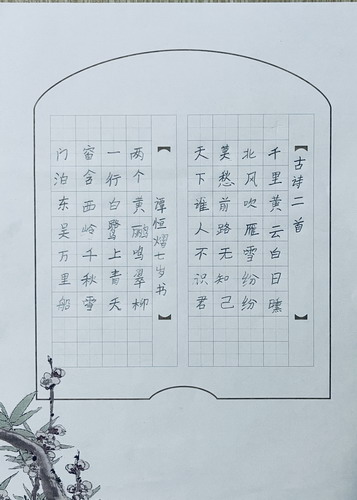 【古诗二首】
千里黄云白日曛
北风吹雁雪纷纷
莫愁前路无知己
天下谁人不识君
【谭恒熠七岁书】
两个黄鹂鸣翠柳
一行白鹭上青天
窗含西岭千秋雪
门泊东吴万里船